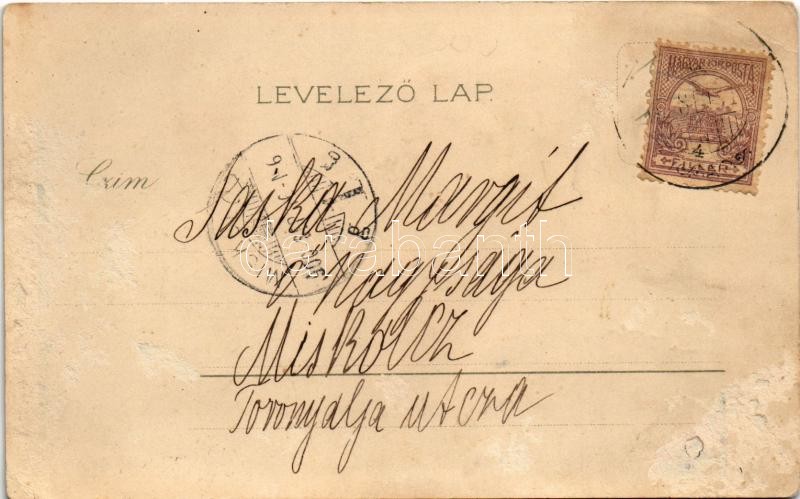 LEVELEZŐ LAP.
MAGYAR KIR. POSTA
4
FILLÉR
Czim
Jaska Margit
Ő Nagysága
Miskolcz
Toronyalja utcza
darabanth